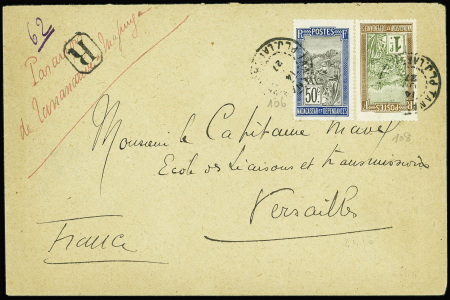 62
R
Par avion
de Tananarive
POSTES
50c
MADAGASCAR ET DEPENDANCES
1F
POSTES
106
108
Monsieur le Capitaine
Ecole des Liaisons et transmissions
Versailles
France